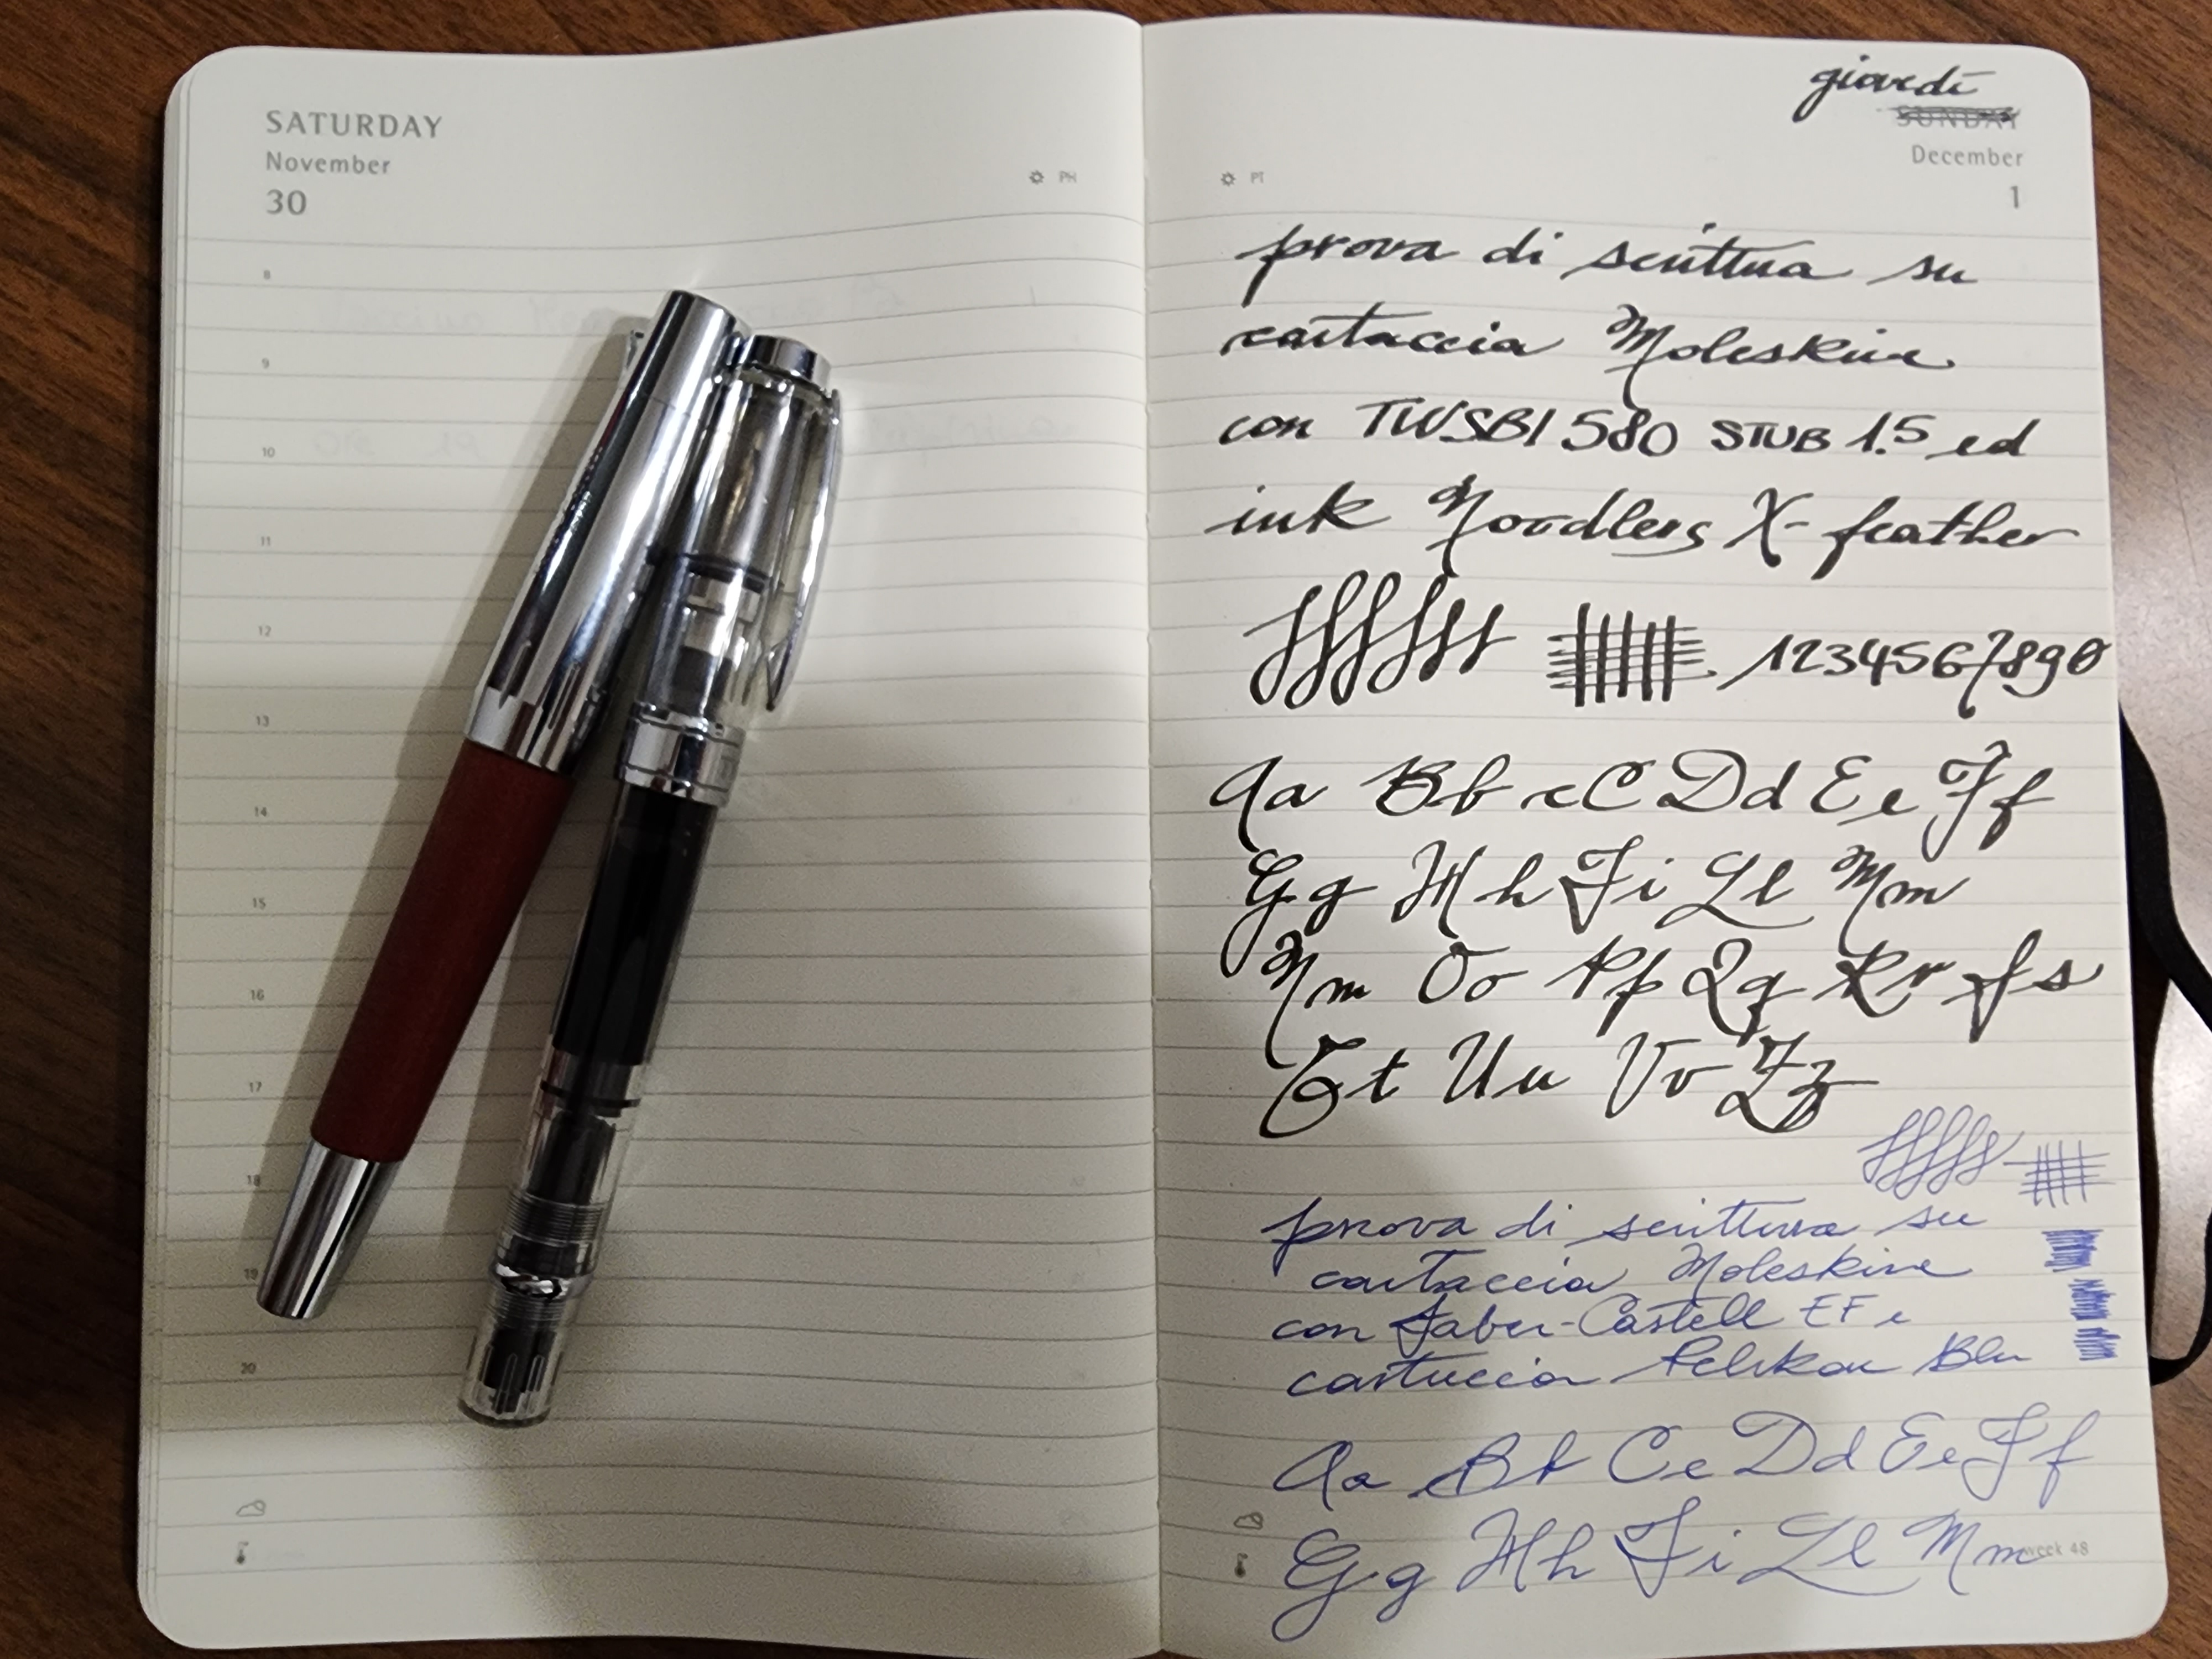 SATURDAY
November
30
PH
8
9
10
11
12
13
14
15
16
17
18
19
20
giovedì
SUNDAY
December
1
PT
prova di scrittura su
cartaccia Moleskine
con TWSBI 580 STUB 1.5 ed
ink Noodlers X-feather
1234567890
Aa Bb cC Dd Ee Ff
Gg Hh Ii Ll Mm
Nn Oo Pp Qq Rr Ss
Tt Uu Vv Zz
prova di scrittura su
cartaccia Moleskine
con Faber-Castell EF e
cartuccia Pelikan Blu
Aa Bb Cc Dd Ee Ff
Gg Hh Ii Ll Mm
week 48